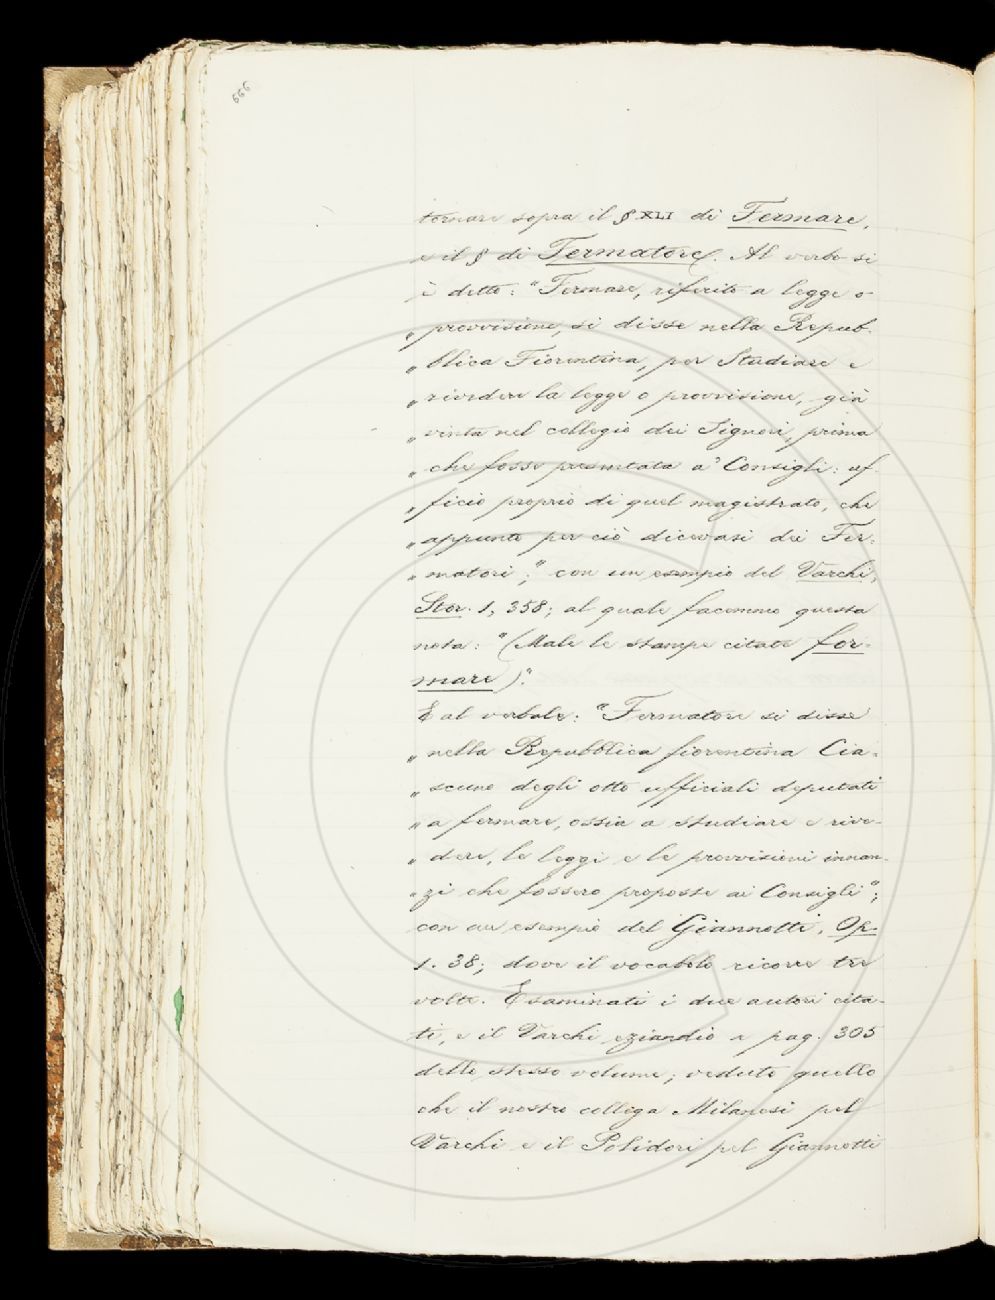 666
tornare sopra il § XLI di Fermare,
e il § di Fermatore. Al verbo si
è detto: "Fermare, riferito a legge o
" provvisione, si disse nella Repub-
" blica Fiorentina, per Studiare e
" rivedere la legge o provvisione, già
" vinta nel collegio dei Signori, prima
" che fosse presentata a' Consigli: uf-
" ficio proprio di quel magistrato, che
" appunto per ciò dicevasi dei Fer-
" matori;" con un esempio del Varchi,
Stor. 1, 358; al quale facemmo questa
nota: "(Male le stampe citate for-
mare)."
E al verbale: "Fermatore si disse
" nella Repubblica fiorentina Cia-
" scuno degli otto ufficiali deputati
" a fermare, ossia a studiare e rive-
" dere, le leggi e le provvisioni innan-
" zi che fossero proposte ai Consigli";
con un esempio del Giannotti, Op.
1. 38; dove il vocabolo ricorre tre
volte. Esaminati i due autori cita-
ti, e il Varchi eziandio a pag. 305
dello stesso volume; veduto quello
che il nostro collega Milanesi pel
Varchi e il Polidori pel Giannotti